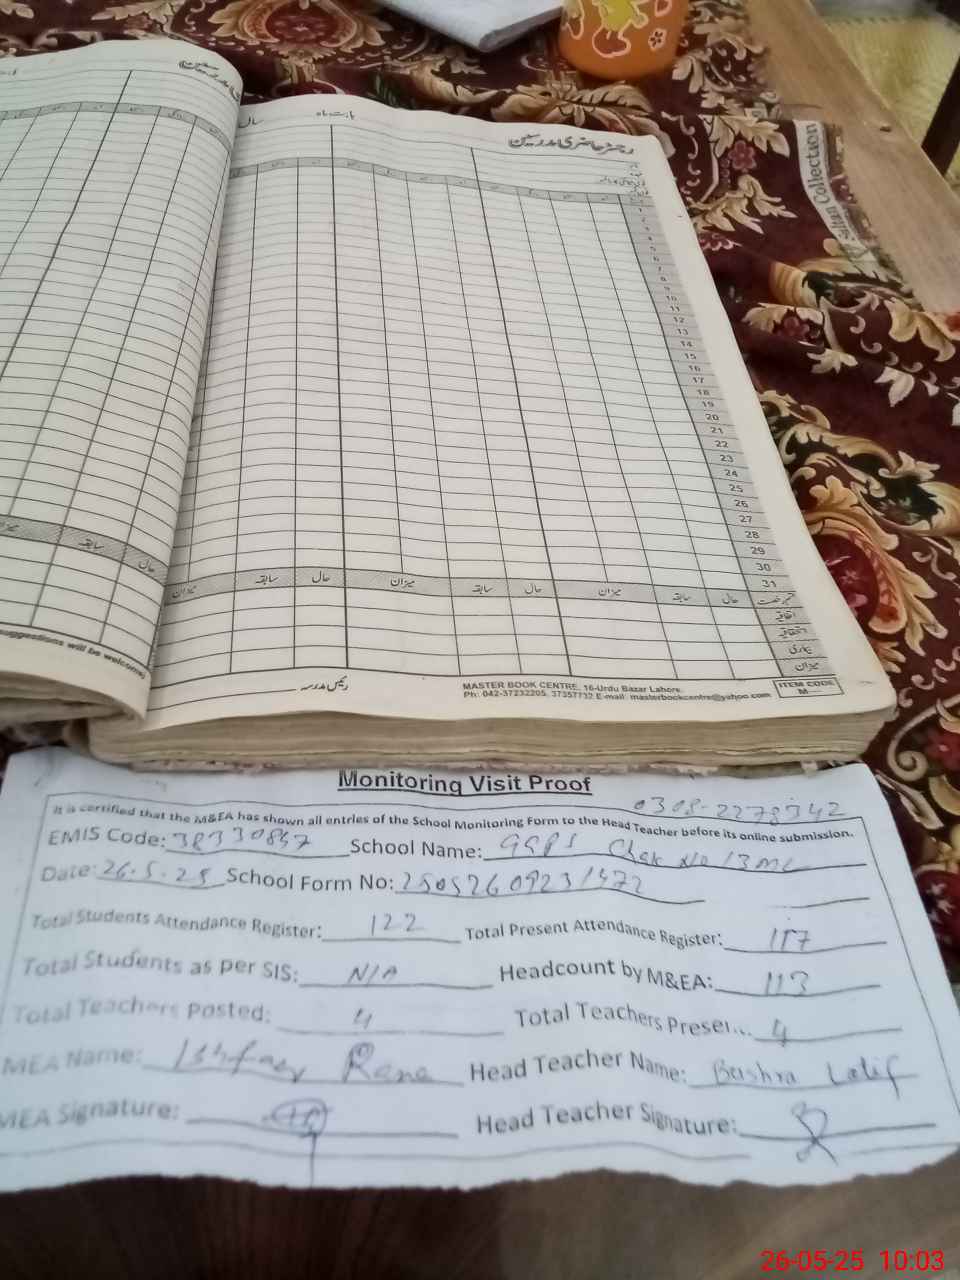 رجسٹر حاضری مدرسین
بابت ماہ
سال
1
2
3
4
5
6
7
8
9
10
11
12
13
14
15
16
17
18
19
20
21
22
23
24
25
26
27
28
29
30
31
میزان سابقہ حال میزان سابقہ حال میزان سابقہ حال
اتفاقیہ
بیماری
میزان
رئیس مدرسہ
MASTER BOOK CENTRE, 16-Urdu Bazar Lahore.
Ph: 042-37232205, 37357732 E-mail: masterbookcentre@yahoo.com
ITEM CODE
M
suggestions will be welcomed
Sultan Collection
Monitoring Visit Proof
0308-2278342
It is certified that the M&EA has shown all entries of the School Monitoring Form to the Head Teacher before its online submission.
EMIS Code: 38330847 School Name: GGPS Chak No 13 ML
Date: 26.5.25 School Form No: 25052609231472
Total Students Attendance Register: 122 Total Present Attendance Register: 117
Total Students as per SIS: N/A Headcount by M&EA: 113
Total Teachers Posted: 4 Total Teachers Presen... 4
MEA Name: Ishfaq Rana Head Teacher Name: Bushra Latif
MEA Signature: Head Teacher Signature:
26-05-25 10:03